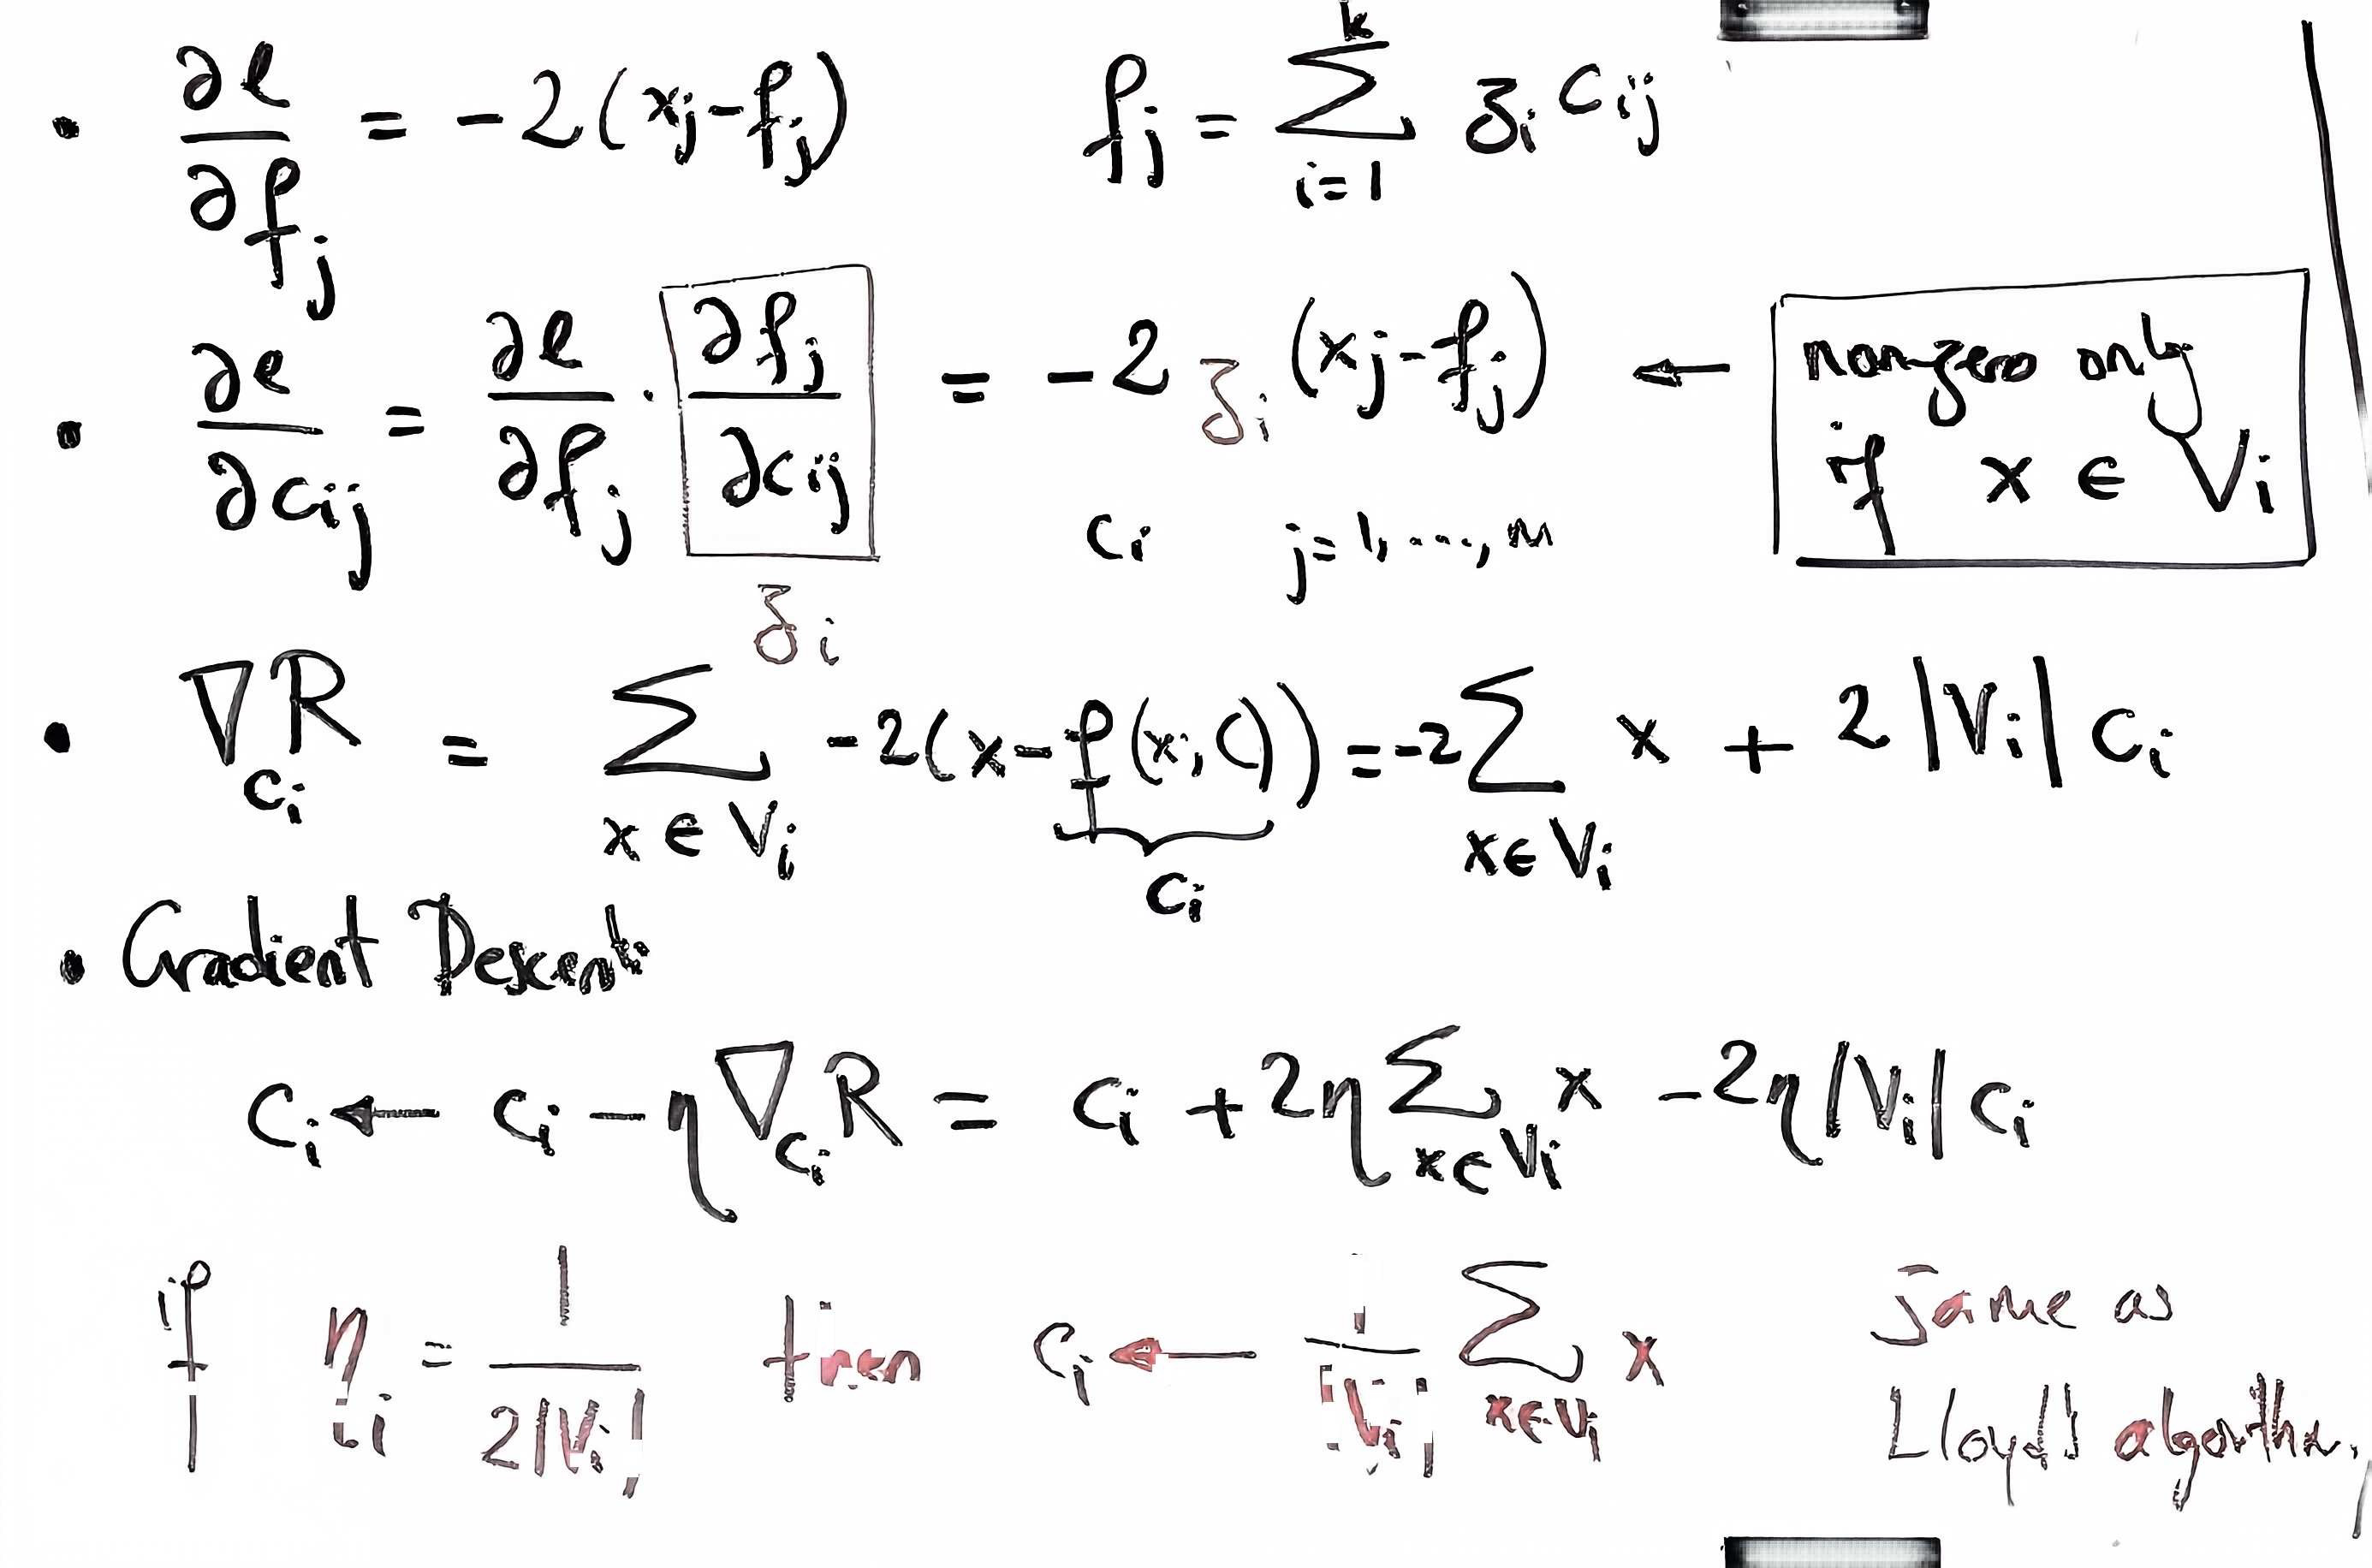 • ∂l/∂f_j = -2(x_j - f_j)    f_j = Σ_{i=1}^{k} z_i c_ij
• ∂e/∂c_ij = ∂l/∂f_j · ∂f_j/∂c_ij = -2 z_i (x_j - f_j) ← nonzero only if x ∈ V_i
z_i    c_i    j=1, ..., n
• ∇_{c_i} R = Σ_{x ∈ V_i} -2(x - f(x; C)) = -2 Σ_{x ∈ V_i} x + 2 |V_i| c_i
c_i
• Gradient Descent:
c_i ← c_i - η ∇_{c_i} R = c_i + 2η Σ_{x ∈ V_i} x - 2η |V_i| c_i
if η_i = 1/(2|V_i|) then c_i ← 1/|V_i| Σ_{x ∈ V_i} x    same as
Lloyd's algorithm.